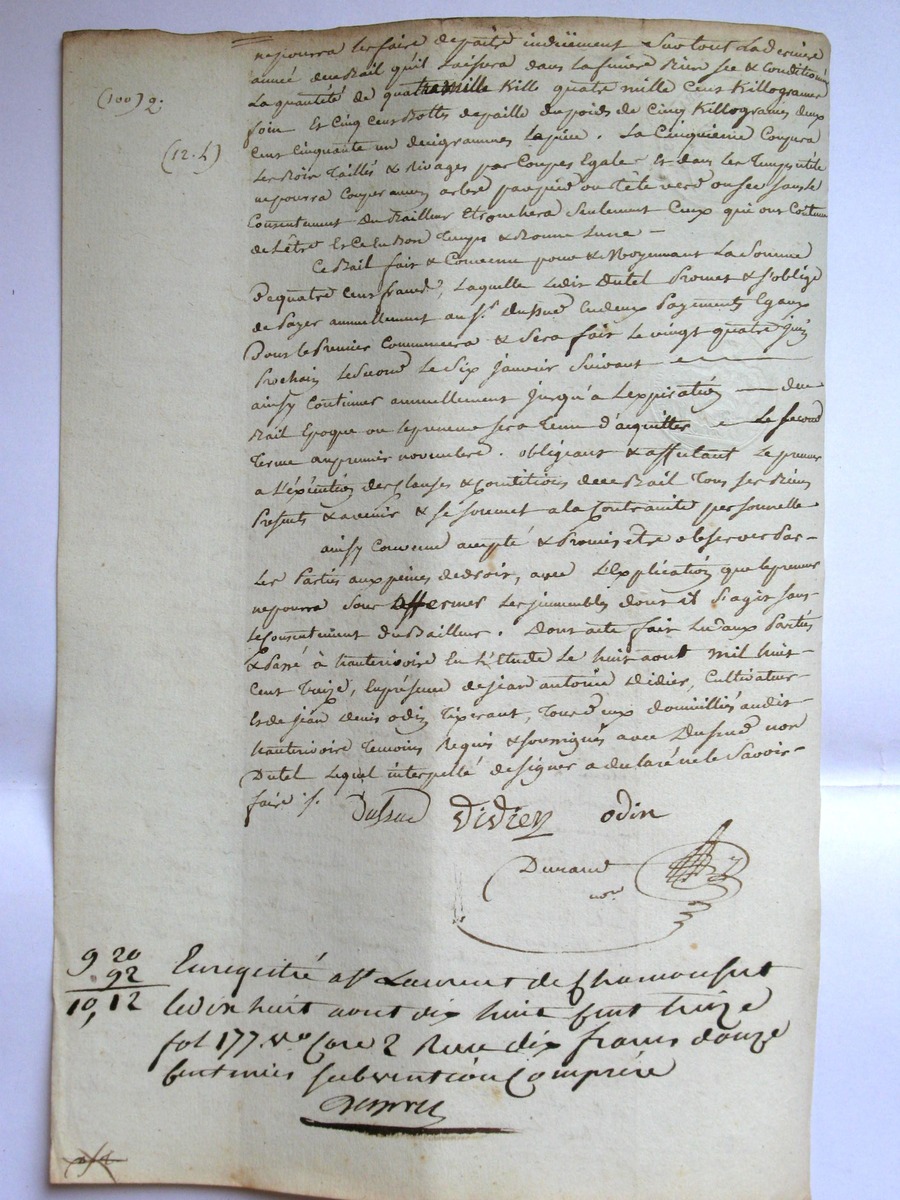 ne pourra les faire depaitre indüement Surtout La derniere
année du Bail qu'il Laissera dans La finiere Bien sec & Conditionné
(100) q. La quantité de quatre mille Kille quatre mille Cens Killogrames
foin Et Cinq Cens Bottes depaille du poids de Cinq Killogrames deux
(12. L) Cens Cinquante un decigrammes La piece. La Cinquieme Coupera
Les Bois Taillés & Rivages par Coupes Egales Et dans les Temps utile
ne pourra Couper aucun arbre par pied ou tête verd ou sec sans le
Consentement Du Bailleur Et ronchera Seulement Ceux qui ont Coutume
de L'être Et Ce En Bon Temps & Bonne Lune —
Ce Bail fait & Convenu pour & Moyennant La Somme
De quatre Cens francs, Laquelle Ledit Dutel Promet & s'oblige
de Payer annuellement au Sr. Dussud En deux Payements Egaux
Dont le Premier Commencera & Sera fait Le vingt quatre juin
Prochain Le Second Le Six Janvier Suivant
ainsy Continuer annuellement jusqu'à L'expiration — du
Bail Epoque ou le preneur sera Tenu d'acquitter Le Second
Terme au premier novembre. obligeant & affectant Le preneur
a L'exécution des Clauses & Conditions de ce Bail Tous ses Biens
Présents & avenir & se soumet a la Contrainte personnelle
ainsy Convenu accepté & Promis être observer Par
Les Parties aux peines de droit, avec L'Explication que le preneur
ne pourra Sous affermer Les jmmeubles dont il S'agit sans
Le Consentement du Bailleur. Dont acte fait Lu aux Parties
& Passé à hauterivoire En L'Etude Le huit aout mil huit
Cent Treize, En présence de jean antoine Didier, Cultivateur
Et de jean Denis odin Tixerant, Tous deux domiciliés audit
hauterivoire Temoins Requis & soussignés avec Dussud non
Dutel Lequel interpellé de signer a declaré ne le Savoir
faire ./.
Dussud Didier odin
Durand
nore
9 20 Enregistré a St Laurent de Chamousset
92 le dix huit aout dix huit cent treize
10,12 fol 177 vo Case 2 Reçu dix francs douze
centimes subvention Comprise